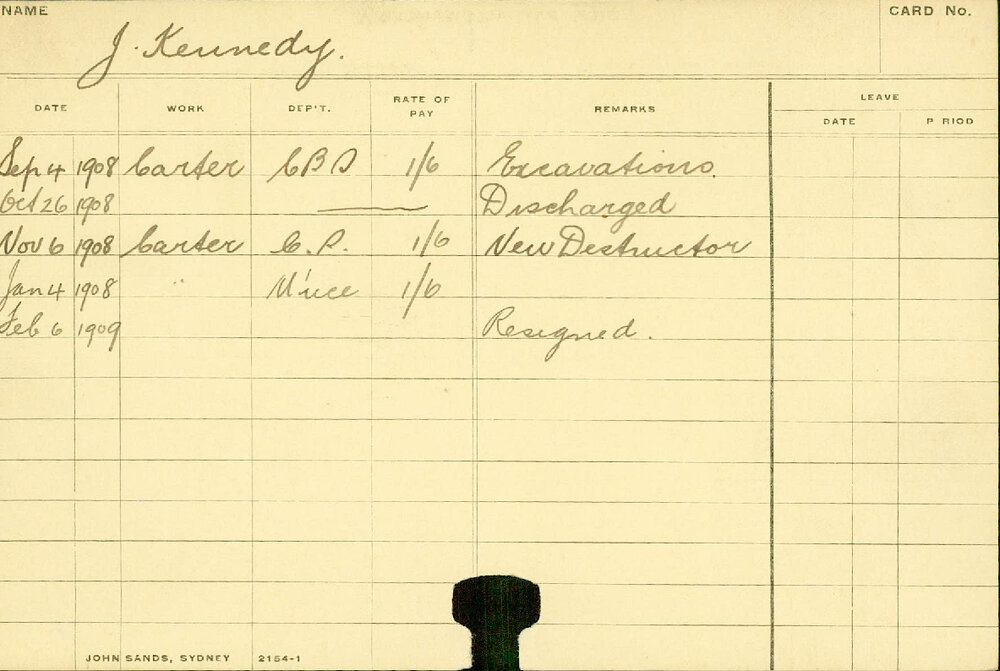 NAME CARD No.
J. Kennedy.
DATE WORK DEP'T. RATE OF PAY REMARKS LEAVE
DATE P RIOD
Sep 4 1908 Carter 1/6 Excavations.
Oct 26 1908 Discharged
Nov 6 1908 Carter 1/6 New Destructor
Jan 4 1908 " M'nce 1/6
Feb 6 1909 Resigned.
JOHN SANDS, SYDNEY 2154-1